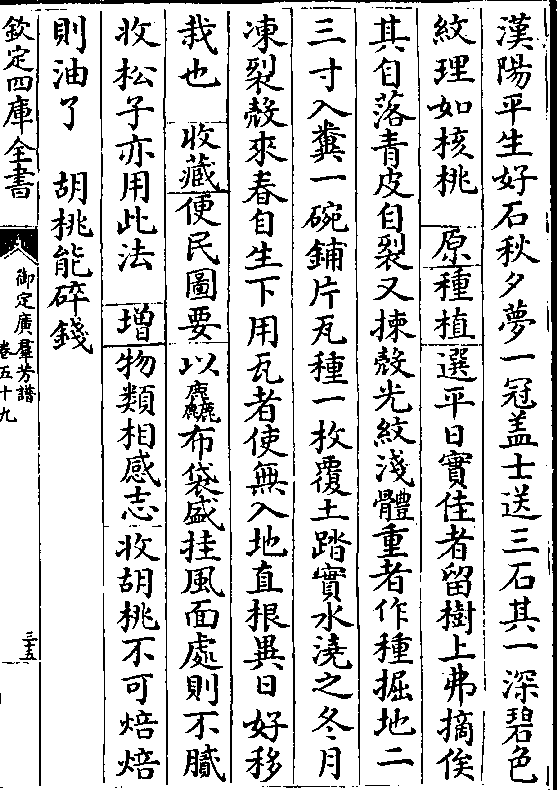 漢陽平生好石秋夕夢一冠盖士送三石其一深碧色
紋理如核桃　原種植選平日實佳者留樹上弗摘俟
其自落青皮自裂又揀殼光紋淺體重者作種掘地二
三寸入糞一碗鋪片瓦種一枚覆土踏實水澆之冬月
凍裂殼來春自生下用瓦者使無入地直根異日好移
栽也　收藏便民圖要以麤布袋盛挂風面處則不膩
收松子亦用此法　增物類相感志收胡桃不可焙焙
則油了　胡桃能碎錢
欽定四庫全書
御定廣羣芳譜
卷五十九
三五